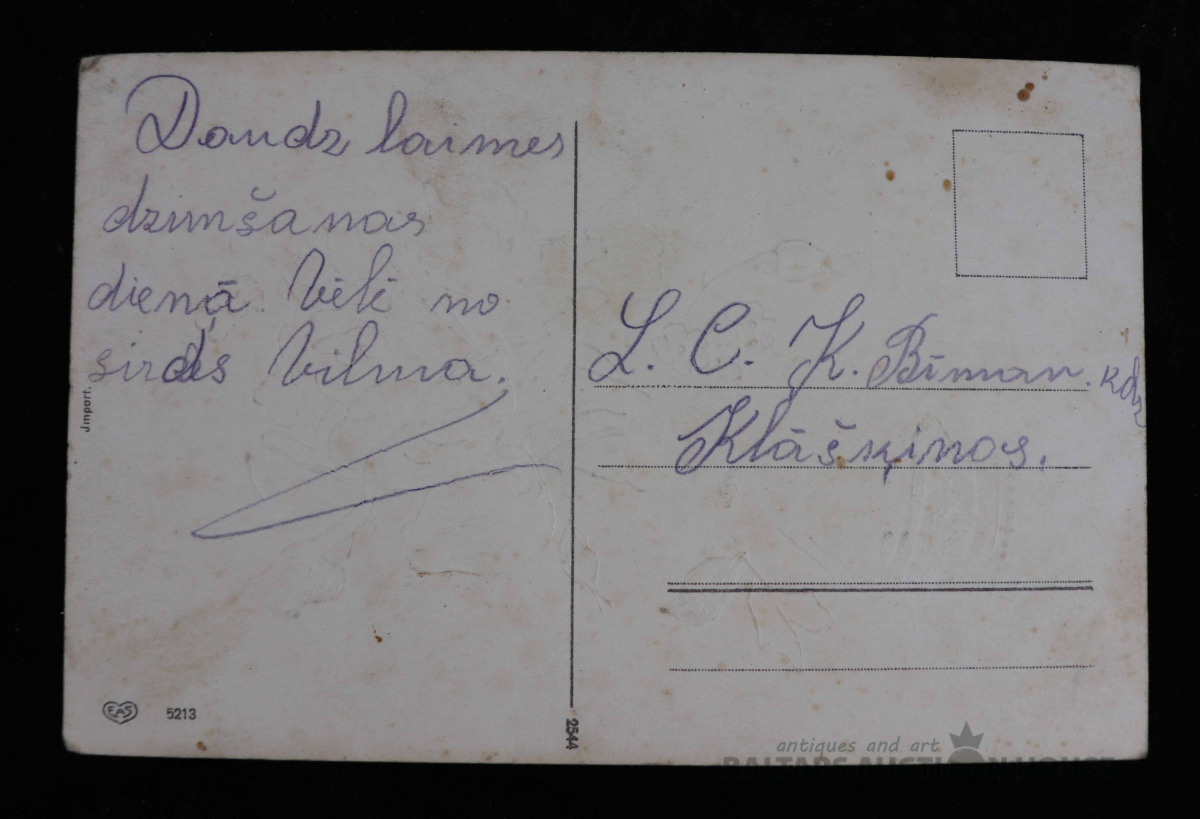 Daudz laimes
dzimšanas
dienā. Vēlē no
sirds Vilma.
L. C. K. Bīman. kdz
Klāšķinas.
Jmport.
EAS 5213
2544
antiques and art
BALTARS AUCTION HOUSE